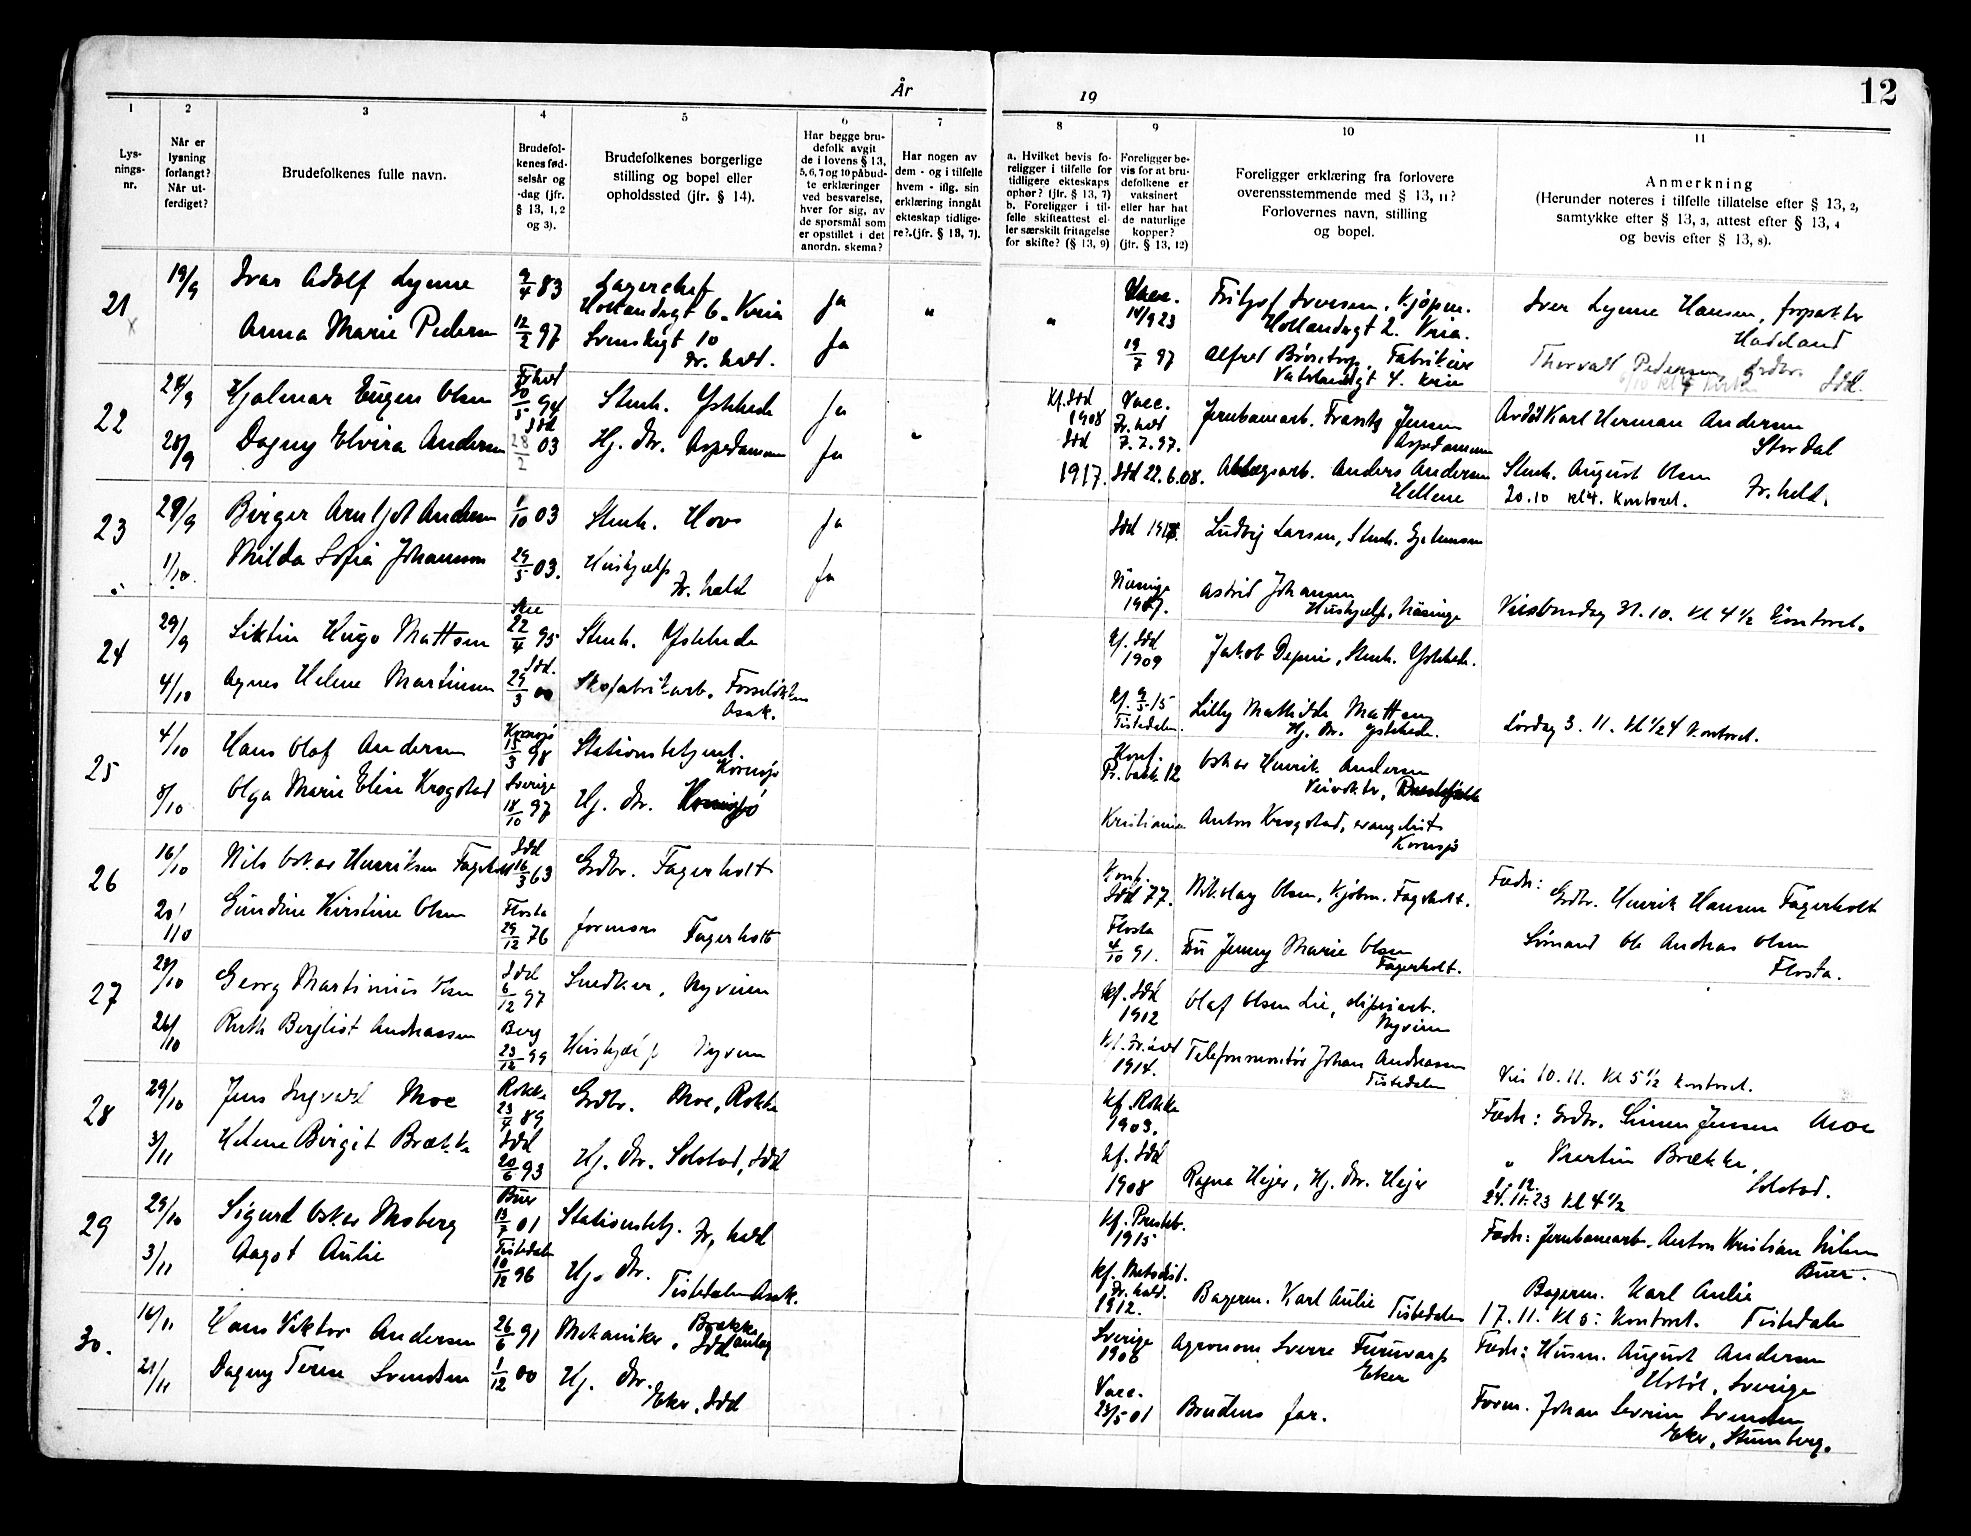 År 19
12
1 2 3 4 5 6 7 8 9 10 11
Lys-
nings-
nr.
Når er
lysning
forlangt?
Når ut-
ferdiget?
Brudefolkenes fulle navn.
Brudefol-
kenes fød-
selsår og
-dag (jfr.
§ 13, 1, 2
og 3).
Brudefolkenes borgerlige
stilling og bopel eller
opholdssted (jfr. § 14).
Har begge bru-
defolk avgit
de i lovens § 13,
5, 6, 7 og 10 påbud-
te erklæringer
ved besvarelse,
hver for sig, av
de spørsmål som
er opstillet i det
anordn. skema?
Har nogen av
dem - og i tilfelle
hvem - iflg. sin
erklæring inngåt
ekteskap tidlige-
re? (jfr. § 13, 7).
a. Hvilket bevis fo-
religger i tilfelle for
tidligere ekteskaps
ophør? (jfr. § 13, 7)
b. Foreligger i til-
felle skifteattest el-
ler særskilt fritagelse
for skifte? (§ 13, 9)
Foreligger be-
vis for at bru-
defolkene er
vaksinert
eller har hat
de naturlige
kopper?
(jfr. § 13, 12)
Foreligger erklæring fra forlovere
overensstemmende med § 13, 11?
Forlovernes navn, stilling
og bopel.
Anmerkning
(Herunder noteres i tilfelle tillatelse efter § 13, 2,
samtykke efter § 13, 3, attest efter § 13, 4
og bevis efter § 13, 8).
21 19/9 Ivar Adolf Lynne 9/4 83 Lagerchef
Hollendergt 6. Kria ja " " Vacc.
14/9 23 Fritjof Iversen, Kjøpm.
Hollendergt 2. Kria. Iver Lynne Hansen, forpakter
Hadeland
Anna Marie Pedersen 12/2 97 Svenskegt 10
Fr. hald. ja 19/7 97 Alfred Børsetorp, Fabrikeier
4. Kria Thorvald Pedersen, Grdbr.
Idd.
22 28/9 Hjalmar Eugen Olsen Fr.hald
30/5 94 Stenh. Ystehede ja " Kf. Idd
1908 Vacc.
Fr. hald
7.7.97. Jernbanearb. Frantz Jensen
Aspedammen Avdøde Karl Herman Andersen
Stordal
28/9 Dagny Elvira Andersen Idd
28/2 03 Hj. dtr. Aspedammen ja Idd
1917. Idd 22.6.08. Anlægsarb. Anders Andersen
Hellene Stenh. August Olsen
Fr. hald.
20.10 kl 4. Kontoret.
23 28/9 Birger Arnljot Andersen 1/10 03 Stenh. Hovs ja Idd 1918. Ludvig Larsen, Stenh.
1/10. Milda Sofia Johansson 29/5 03. Hushjælp
Fr. hald ja Näsinge
1907. Astrid Johansen
Hushjælp, Näsinge Onsdag 31. 10. kl 4 1/2 Kontoret.
24 29/9 Hugo Mattson
22/4 95 Stenh. Ystehede Kf. Idd
1909 Jakob Depui, Stenh. Ystehede.
4/10 Agnes Helene Martinsen Idd.
29/3 00 Skofabrikarb. Fosseløkken
Asak. Kf. 9/5 15
Tistedalen. Lilly Mathilde Mattson
Hj. dtr. Ystehede. Lørdag 3. 11. kl 1/2 4 Kontoret.
25 4/10 Hans Olaf Andersen Kornsjø
15/3 98 Stationsbetjent.
Kornsjø Konf.
Pr. bakke 12 Oskar Henrik Andersen
Veivokter,
8/10 Olga Marie Elise Krogstad Sverige
18/10 97 Hj. dtr. Kornsjø Kristiania Anton Krogstad, evangelist
Kornsjø
26 16/10 Nils Oskar Henriksen Fagerholt Idd
16/3 63 Grdbr. Fagerholt Konf.
Idd 77. Nikolay Olsen, Kjøbm. Fagerholt. Fædre: Grdbr. Henrik Hansen Fagerholt
20/10 Gundine Kirstine Olsen Flosta
29/12 76 Jormor Fagerholt Flosta
4/10 91. Fru Jenny Marie Olsen
Fagerholt. Sømand Ole Andreas Olsen
Flosta.
27 23/10 Georg Martinius Olsen Idd
6/12 97 Snedker, Nyveien Kf. Idd
1912 Olaf Olsen Lie, sliperiarb.
Nyveien
26/10 Ruth Bergliot Andreassen Berg
23/12 99 Hushjælp Nyveien Kf. Fr.hald
1914. Telefonmontør Johan Andreassen
Tistedalen 10. 11. Kl 5 1/2 Kontoret.
28 29/10 Jens Ingvald Moe Rokke
23/4 89 Grdbr. Moe, Rokke Kf. Rokke
1903. Fædre: Grdbr. Simen Jensen Moe
3/11 Helene Birgit Brække Idd
20/6 93 Hj. dtr. Solstad, Idd Kf. Idd
1908 Ragna Hejer, Hj. dtr. Hejer " Martin Brække,
Solstad.
1. 12.
24. 11. 23 kl 4 1/2
29 29/10 Sigurd Oskar Moberg Buer
13/7 01 Stationsbetj. Fr. hald Kf. Presteb.
1915 Fædre: Jernbanearb. Anton Kristian Nilsen
Buer.
3/11 Aagot Aulie Tistedalen
10/12 96 Hj. dtr.
Tistedalen Asak. Kf. Metodist.
Fr. hald.
1912. Bagerm. Karl Aulie Tistedalen Bagerm. Karl Aulie
Tistedalen
17. 11. Kl 5: Kontoret.
30. 16/11 Hans Viktor Andersen 26/6 91 Mekaniker, Brække
anlæg
Idd Sverige
1906 Agronom Sverre Furuvarp
Eker Fædre: Husm. August Andersen
Sverige
21/11 Dagny Svendsen 1/12 00 Hj. dtr.
Eker, Idd Vacc.
23/5 01 Brudens far. Form. Johan Severin Svendsen
Eker,